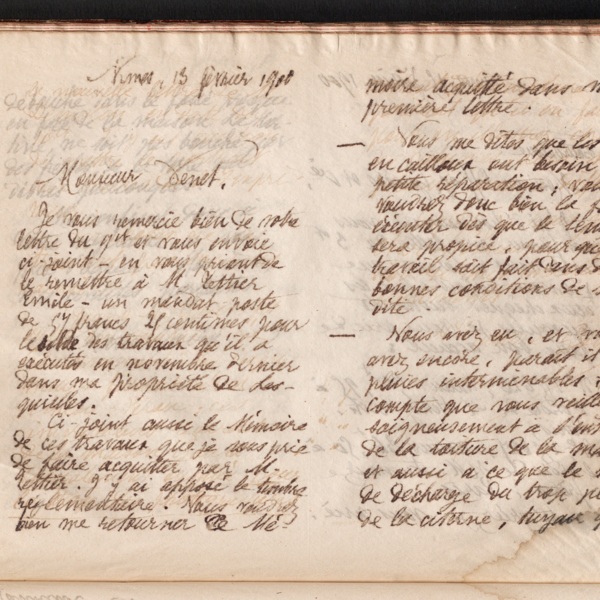 Nîmes, 13 février 1900
Monsieur Denet.
Je vous remercie bien de votre
lettre du 9 ct et vous envoie
ci-joint – en vous priant de
le remettre à M. Lettier
Emile – un mandat poste
de 57 francs 25 centimes pour
le solde des travaux qu'il a
exécutés en novembre dernier
dans ma propriété de Les-
quielles.
Ci-joint aussi le Mémoire
de ces travaux que je vous prie
de faire acquitter par M.
Lettier. J'y ai apposé le timbre
réglementaire. Vous voudrez
bien me retourner ce Mé-
moire acquitté dans
première lettre.
— Vous me dites que les
en cailloux ont besoin
petite réparation ;
voudrez donc bien la
exécuter dès que le
sera propice, pour
travail soit fait dans
bonnes conditions de
vité.
— Vous avez eu, et
avez encore, parait il
pluies interminables
compte que vous
soigneusement à
de la toiture de la
et aussi à ce que le
de décharge du trop
de la citerne, tuyau